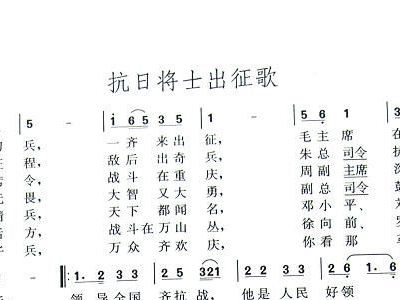 抗日将士出征歌
5 - i 6 5 3 5 1 - 5 6 1
兵, 一 齐 来 出 征, 毛 主 席 在
程, 敌 后 出 奇 兵, 朱 总 司令
令, 战 斗 在 重 庆, 周 副 主席
畏, 大 智 又 大 勇, 副 总 司令
兵, 天 下 都 闻 名, 邓 小 平、
方, 战 斗 在 万 山 丛, 徐 向 前、
兵, 万 众 齐 欢 庆, 你 看 那
1. 2 3 3 2 1. 2 3 3 5. 5 3 2 1 1. 2 3 3 2 6. 1 6.
领 导 全国 齐 抗 战, 他 是 人 民 好 领